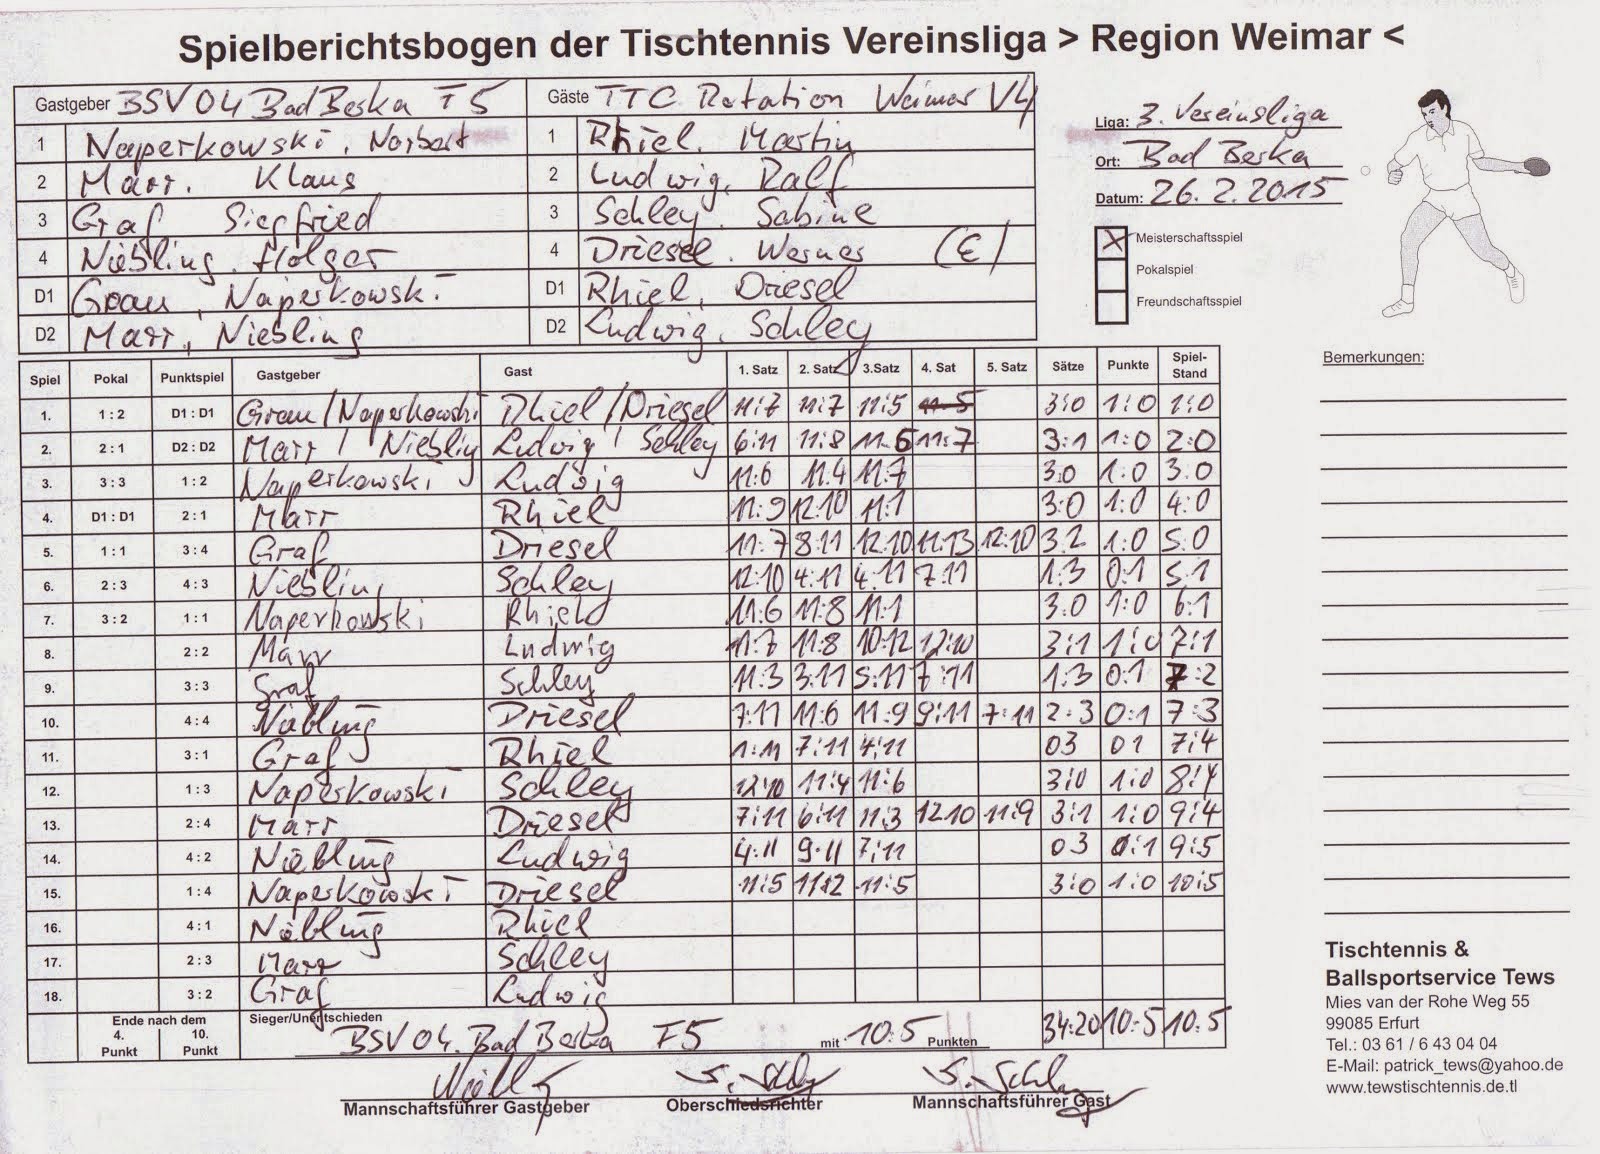 Spielberichtsbogen der Tischtennis Vereinsliga > Region Weimar <
Gastgeber BSV 04 Bad Berka T5 Gäste TTC Rotation Weimar V4
Liga: 3. Vereinsliga
1 Naperkowski, Norbert 1 Rhiel, Martin
Ort: Bad Berka
2 Marr, Klaus 2 Ludwig, Ralf
Datum: 26.2.2015
3 Graf Siegfried 3 Schley, Sabine
X Meisterschaftsspiel
4 Niebling, Holger 4 Driesel, Werner (E)
Pokalspiel
D1 Grau, Naperkowski D1 Rhiel, Driesel
Freundschaftsspiel
D2 Marr, Niebling D2 Ludwig, Schley
Bemerkungen:
Spiel Pokal Punktspiel Gastgeber Gast 1. Satz 2. Satz 3.Satz 4. Sat 5. Satz Sätze Punkte Spiel-Stand
1. 1 : 2 D1 : D1 Grau/Naperkowski Rhiel/Driesel 11:7 11:7 11:5 11:5 3:0 1:0 1:0
2. 2 : 1 D2 : D2 Marr / Niebling Ludwig / Schley 6:11 11:8 11:6 11:7 3:1 1:0 2:0
3. 3 : 3 1 : 2 Naperkowski Ludwig 11:6 11:4 11:7 3:0 1:0 3:0
4. D1 : D1 2 : 1 Marr Rhiel 11:9 12:10 11:1 3:0 1:0 4:0
5. 1 : 1 3 : 4 Graf Driesel 11:7 8:11 12:10 11:13 12:10 3:2 1:0 5:0
6. 2 : 3 4 : 3 Niebling Schley 12:10 4:11 4:11 7:11 1:3 0:1 5:1
7. 3 : 2 1 : 1 Naperkowski Rhiel 11:6 11:8 11:1 3:0 1:0 6:1
8. 2 : 2 Marr Ludwig 11:7 11:8 10:12 12:10 3:1 1:0 7:1
9. 3 : 3 Graf Schley 11:3 3:11 5:11 7:11 1:3 0:1 7:2
10. 4 : 4 Niebling Driesel 7:11 11:6 11:9 9:11 7:11 2:3 0:1 7:3
11. 3 : 1 Graf Rhiel 1:11 7:11 4:11 03 01 7:4
12. 1 : 3 Naperkowski Schley 12:10 11:4 11:6 3:0 1:0 8:4
13. 2 : 4 Marr Driesel 7:11 6:11 11:3 12:10 11:9 3:1 1:0 9:4
14. 4 : 2 Niebling Ludwig 4:11 9:11 7:11 03 0:1 9:5
15. 1 : 4 Naperkowski Driesel 11:5 11:2 11:5 3:0 1:0 10:5
16. 4 : 1 Niebling Rhiel
17. 2 : 3 Marr Schley
18. 3 : 2 Graf Ludwig
Ende nach dem 4. Punkt 10. Punkt Sieger/Unentschieden BSV 04 Bad Berka T5 mit 10:5 Punkten 34:20 10:5 10:5
Mannschaftsführer Gastgeber Oberschiedsrichter Mannschaftsführer Gast
Tischtennis &
Ballsportservice Tews
Mies van der Rohe Weg 55
99085 Erfurt
Tel.: 03 61 / 6 43 04 04
E-Mail: patrick_tews@yahoo.de
www.tewstischtennis.de.tl